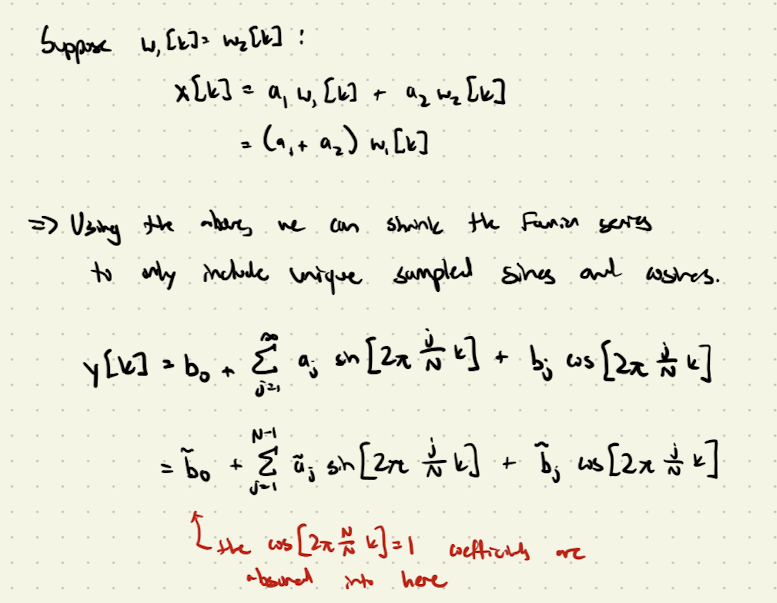 Suppose w₁[k] = w₂[k] :
x[k] = a₁ w₁[k] + a₂ w₂[k]
= (a₁ + a₂) w₁[k]
=> Using the above, we can shrink the Fourier series
to only include unique sampled sines and cosines.
y[k] = b₀ + ∑_{j=1}^{∞} a_j sin[2π j/N k] + b_j cos[2π j/N k]
= b̃₀ + ∑_{j=1}^{N-1} ã_j sin[2π j/N k] + b̃_j cos[2π j/N k]
the cos[2π N/N k] = 1 coefficients are
absorbed into here